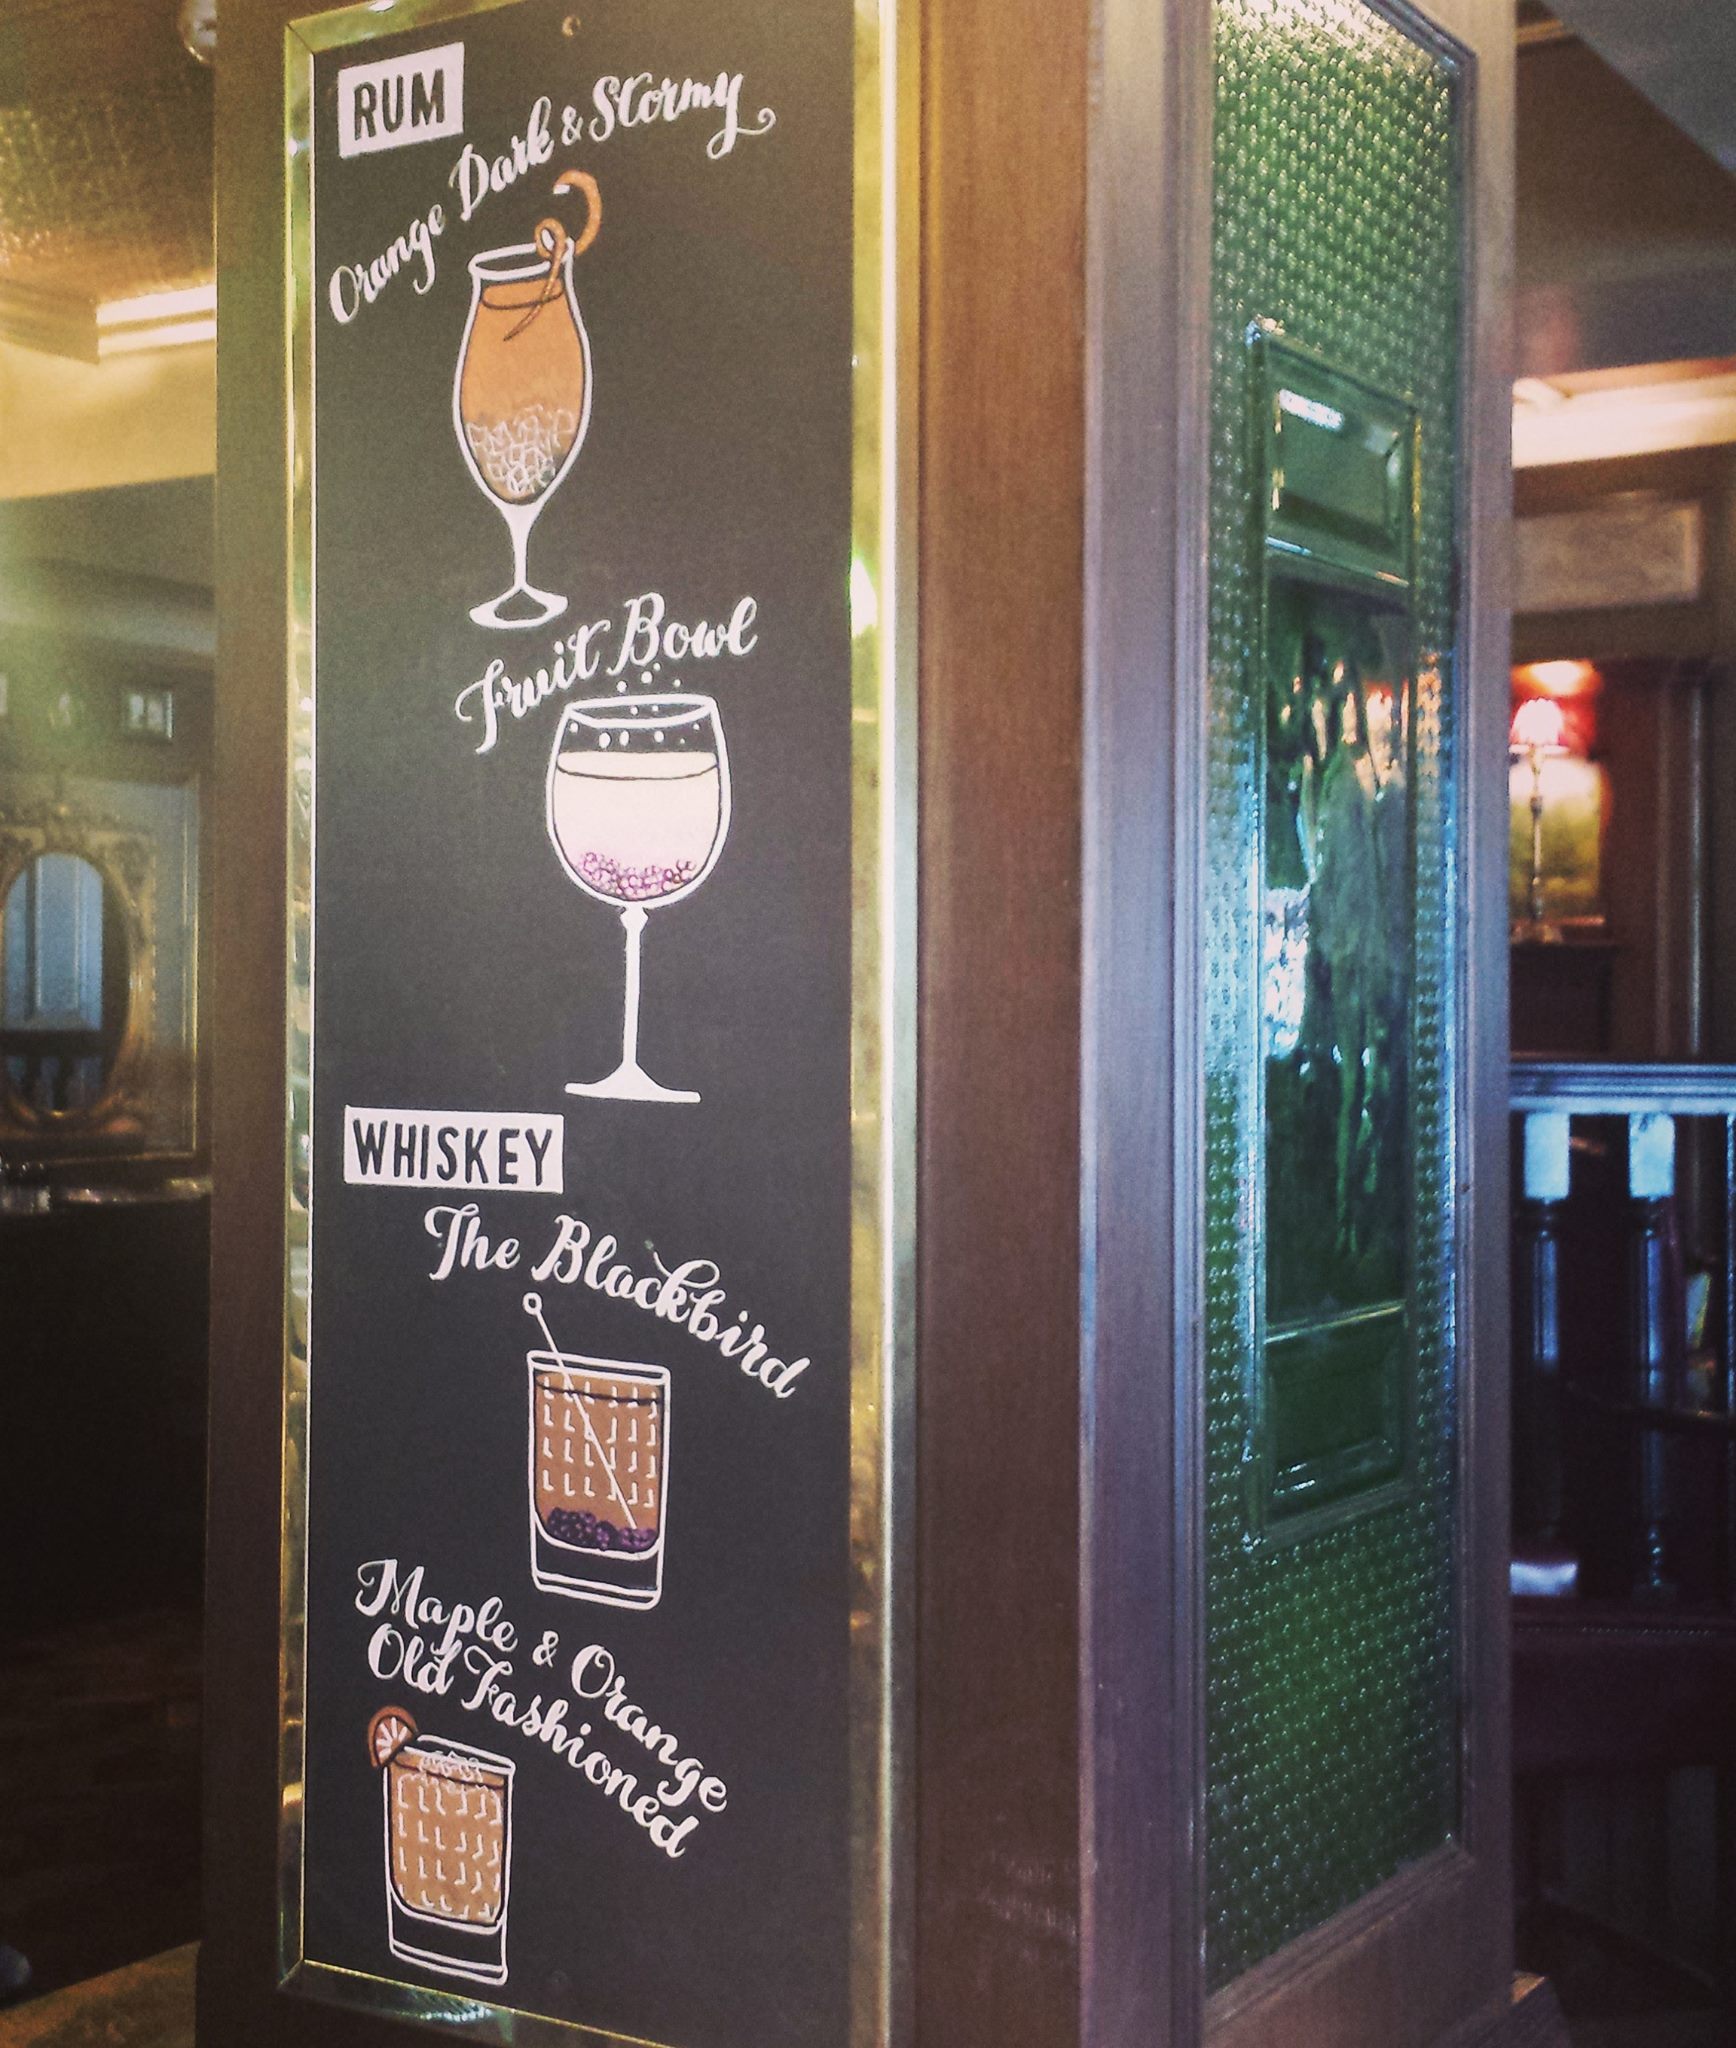 RUM
Orange Dark & Stormy
Fruit Bowl
WHISKEY
The Blackbird
Maple & Orange
Old Fashioned